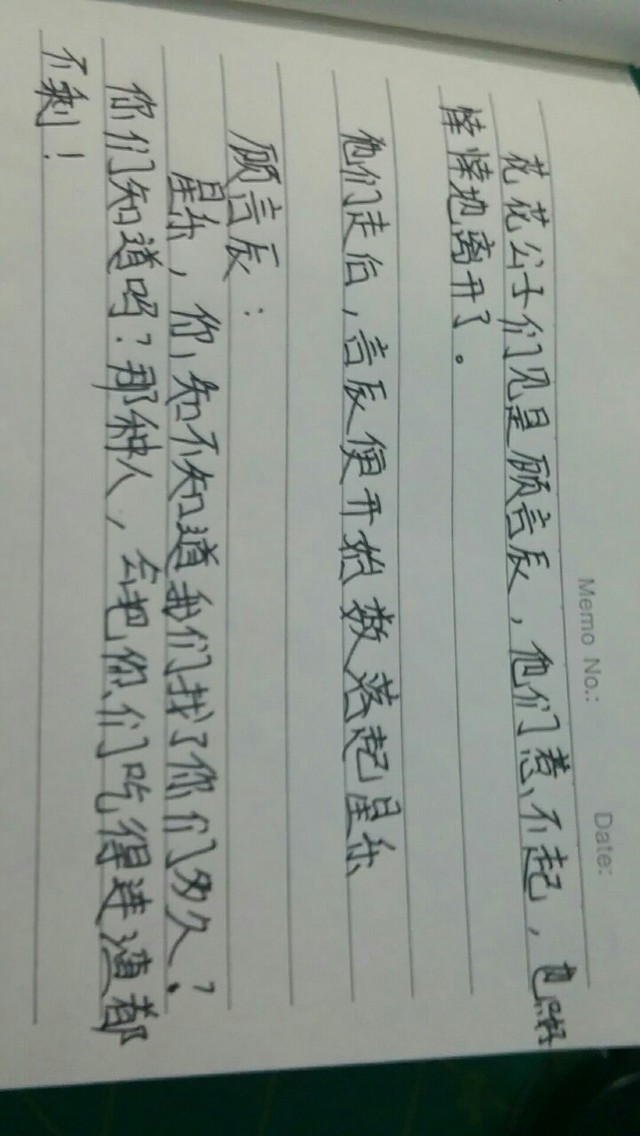 Memo No.:
Date:
花花公子们见是顾言辰，他们惹不起，也只好
悻悻地离开了。
他们走后，言辰便开始数落起星乐
顾言辰：
星乐，你知不知道我们找了你们多久？
你们知道吗？那种人，会把你们吃得连渣都
不剩！